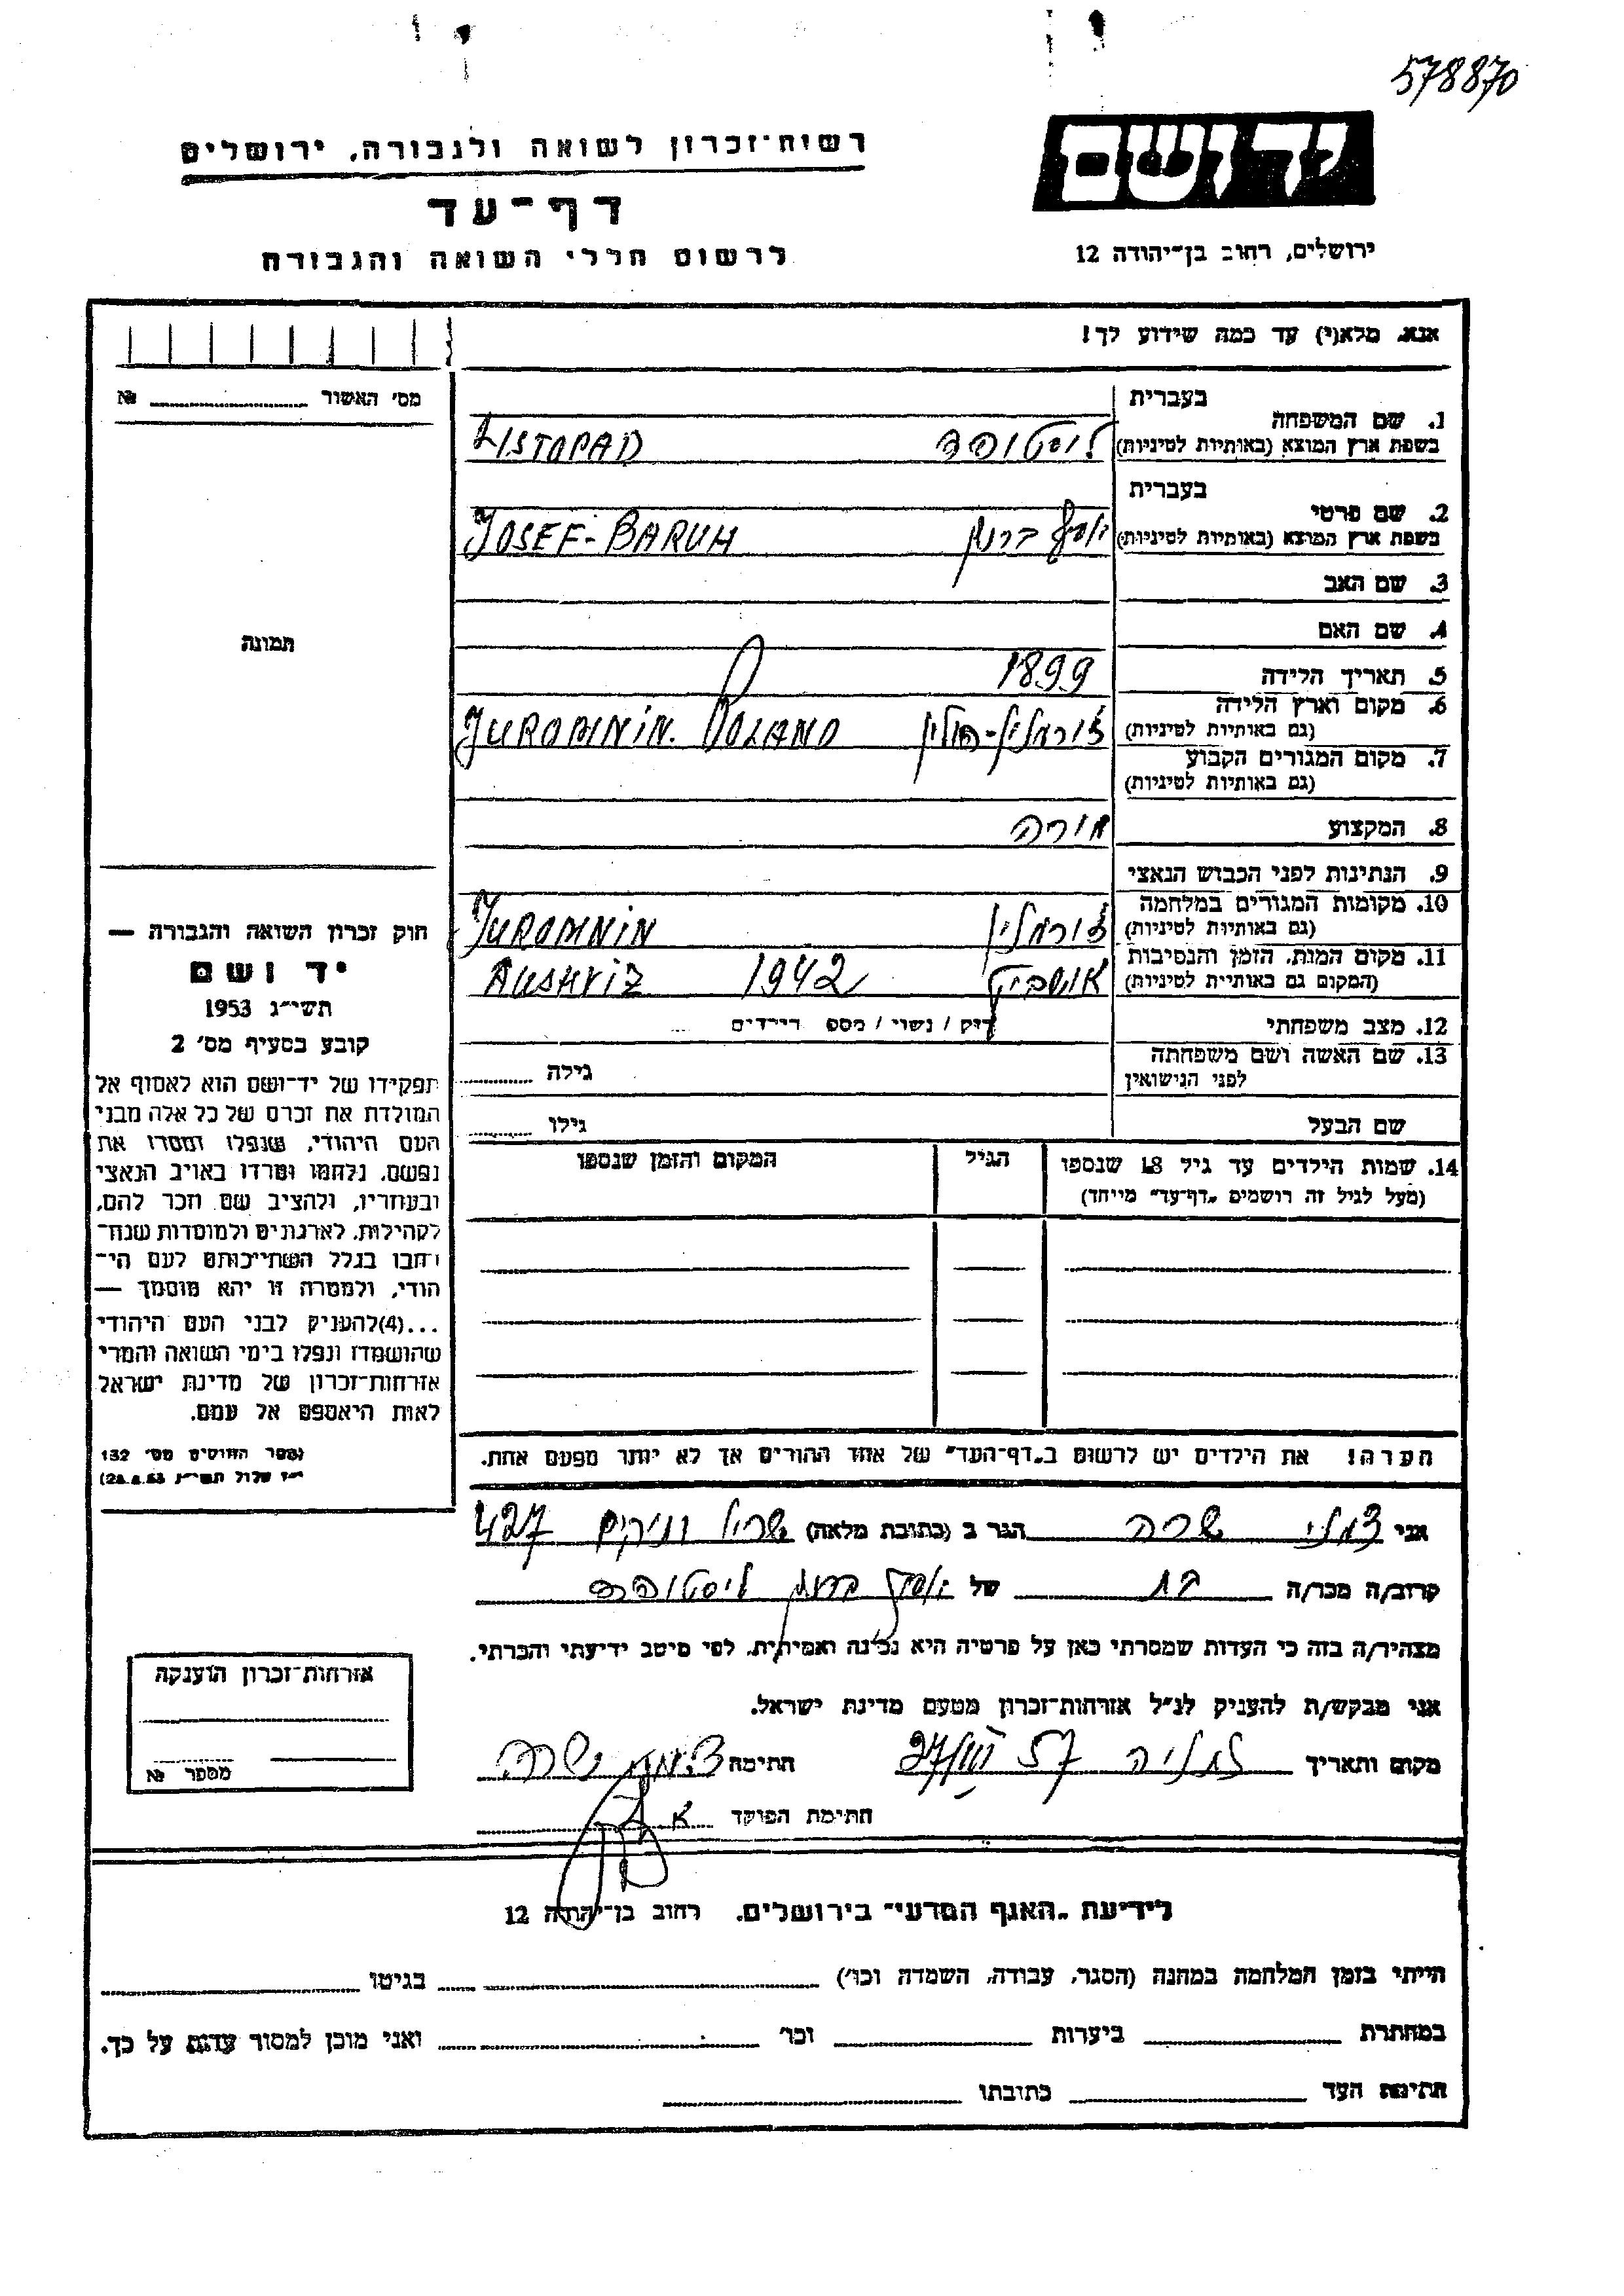 578870
יד ושם
ירושלים, רחוב בן־יהודה 12
רשות־זכרון לשואה ולגבורה, ירושלים
דף־עד
לרשום חללי השואה והגבורה
אנא, מלא(י) עד כמה שידוע לך!
מס׳ האשור № 
תמונה
1. שם המשפחה
בעברית
בשפת ארץ המוצא (באותיות לטיניות)
ליסטופד LISTOPAD
2. שם פרטי
בעברית
בשפת ארץ המוצא (באותיות לטיניות)
יוסף ברוך JOSEF-BARUH
3. שם האב
4. שם האם
5. תאריך הלידה 1899
6. מקום וארץ הלידה
(גם באותיות לטיניות)
ז'ורמנין-פולין JUROMNIN. POLAND
7. מקום המגורים הקבוע
(גם באותיות לטיניות)
8. המקצוע מורה
9. הנתינות לפני הכבוש הנאצי
10. מקומות המגורים במלחמה
(גם באותיות לטיניות)
ז'ורמנין JUROMNIN
11. מקום המות, הזמן והנסיבות
(המקום גם באותיות לטיניות)
אושביץ 1942 AUSHVIZ
12. מצב משפחתי רוק / נשוי / מספר הילדים
13. שם האשה ושם משפחתה
לפני הנישואין
גילה
שם הבעל גילו
14. שמות הילדים עד גיל 18 שנספו הגיל המקום והזמן שנספו
(מעל לגיל זה רושמים „דף־עד״ מיוחד)
הערה! את הילדים יש לרשום ב„דף־העד״ של אחד ההורים אך לא יותר מפעם אחת.
חוק זכרון השואה והגבורה —
יד ושם
תשי״ג 1953
קובע בסעיף מס׳ 2
תפקידו של יד־ושם הוא לאסוף אל
המולדת את זכרם של כל אלה מבני
העם היהודי, שנפלו ומסרו את
נפשם, נלחמו ומרדו באויב הנאצי
ובעוזריו, ולהציב שם וזכר להם,
לקהילות, לארגונים ולמוסדות שנח־
רבו בגלל השתייכותם לעם הי־
הודי, ולמטרה זו יהא מוסמך —
...(4)להעניק לבני העם היהודי
שהושמדו ונפלו בימי השואה והמרי
אזרחות־זכרון של מדינת ישראל
לאות היאספם אל עמם.
(ספר החוקים מס׳ 132
י״ז אלול תשי״ג 28.8.53)
אני שרה הגר ב (כתובת מלאה) 427
קרוב/ה מכר/ה בת של יוסף ברוך ליסטופד
מצהיר/ה בזה כי העדות שמסרתי כאן על פרטיה היא נכונה ואמיתית, לפי מיטב ידיעתי והכרתי.
אני מבקש/ת להעניק לנ״ל אזרחות־זכרון מטעם מדינת ישראל.
מקום ותאריך נתניה חתימה שרה
חתימת הפוקד
אזרחות־זכרון הוענקה
מספר №
לידיעת „האגף המדעי״ בירושלים, רחוב בן־יהודה 12
הייתי בזמן המלחמה במחנה (הסגר, עבודה, השמדה וכו׳) בגיטו
במחתרת ביערות וכו׳ ואני מוכן למסור עדות על כך.
חתימת העד כתובתו